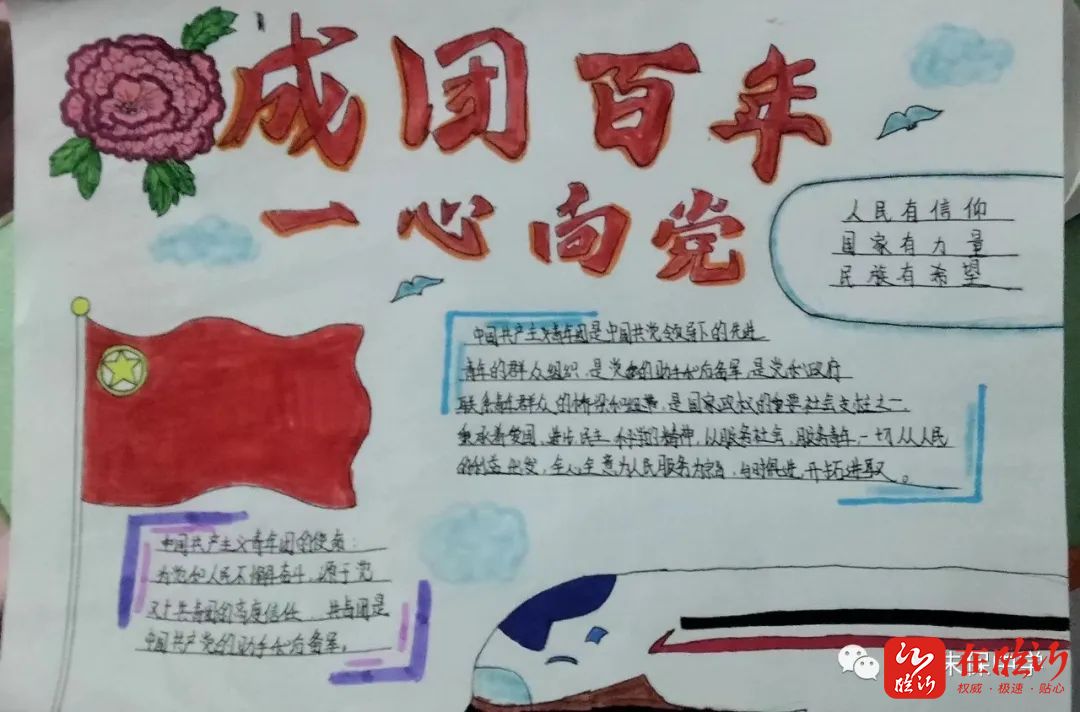 成团百年
一心向党
人民有信仰
国家有力量
民族有希望
中国共产主义青年团是中国共党领导下的先进
青年的群众组织,是党的助手和后备军,是党和政府
联系青年群众的桥梁和纽带,是国家政权的重要社会支柱之一.
秉承着爱国、进步、民主、科学的精神,以服务社会、服务青年,一切从人民
的利益出发,全心全意为人民服务为宗旨,与时俱进,开拓进取。
中国共产主义青年团的使命:
为党和人民不懈奋斗,源于党
对共青团的高度信任 共青团是
中国共产党的助手和后备军。
在临沂
临沂
权威·极速·贴心